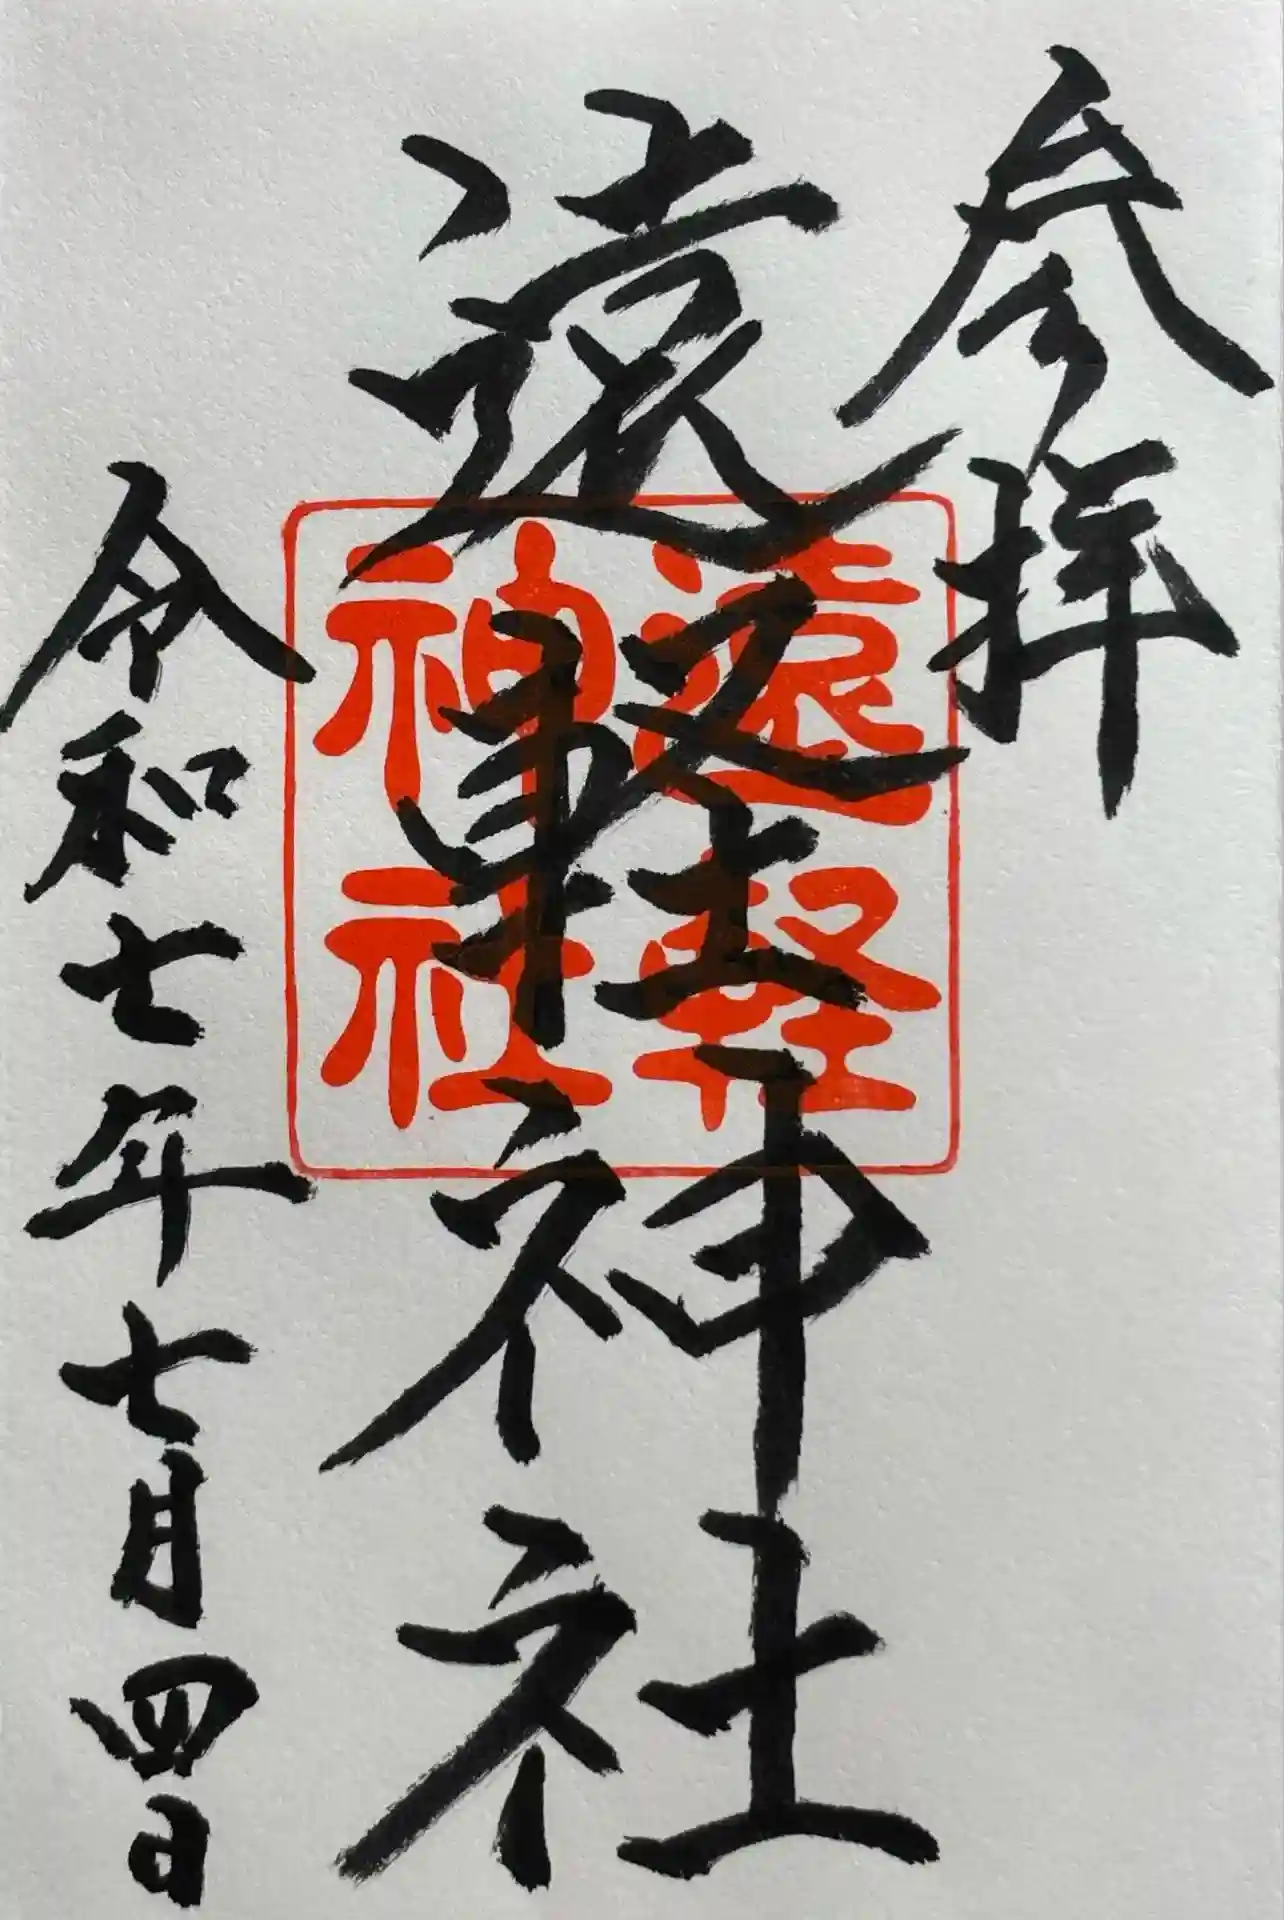 参拝
遠軽神社
遠軽
神社
令和七年七月四日